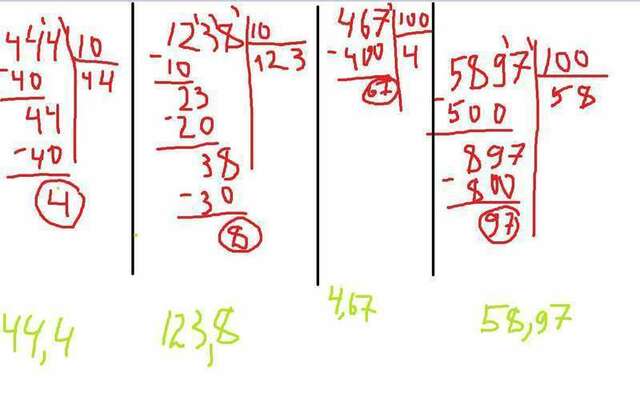 444 10
-40 44
44
-40
4
1238 10
-10 123
23
-20
38
-30
8
467 100
-400 4
67
5897 100
-500 58
897
-800
97
44,4 123,8 4,67 58,97